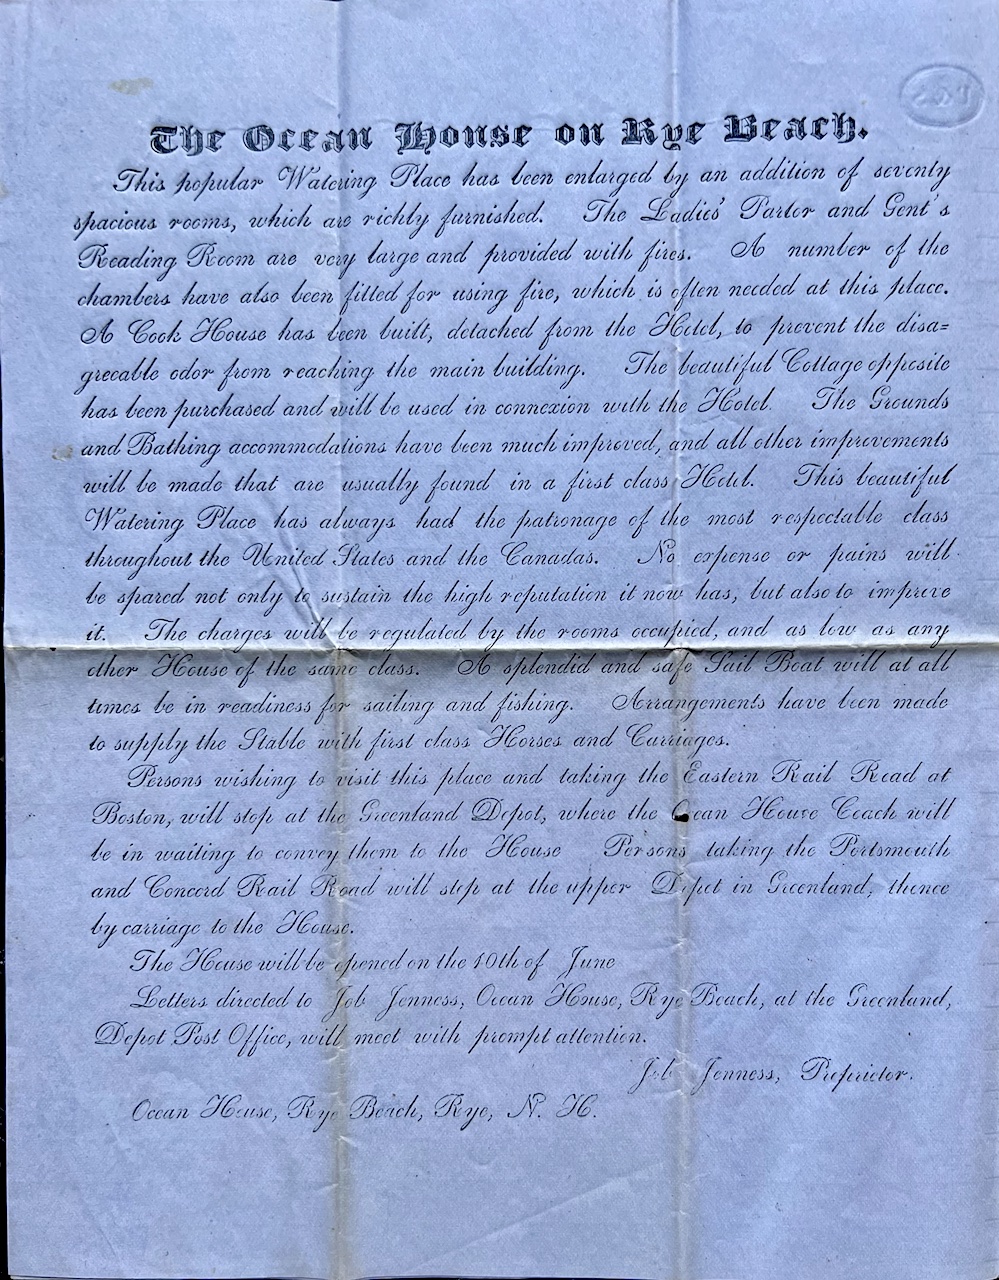 The Ocean House on Rye Beach.
This popular Watering Place has been enlarged by an addition of seventy
spacious rooms, which are richly furnished. The Ladies' Parlor and Gent's
Reading Room are very large and provided with fires. A number of the
chambers have also been fitted for using fire, which is often needed at this place.
A Cook House has been built, detached from the Hotel, to prevent the disa=
greeable odor from reaching the main building. The beautiful Cottage opposite
has been purchased and will be used in connexion with the Hotel. The Grounds
and Bathing accommodations have been much improved, and all other improvements
will be made that are usually found in a first class Hotel. This beautiful
Watering Place has always had the patronage of the most respectable class
throughout the United States and the Canadas. No expense or pains will
be spared not only to sustain the high reputation it now has, but also to improve
it. The charges will be regulated by the rooms occupied, and as low as any
other House of the same class. A splendid and safe Sail Boat will at all
times be in readiness for sailing and fishing. Arrangements have been made
to supply the Stable with first class Horses and Carriages.
Persons wishing to visit this place and taking the Eastern Rail Road at
Boston, will stop at the Greenland Depot, where the Ocean House Coach will
be in waiting to convey them to the House Persons taking the Portsmouth
and Concord Rail Road will stop at the upper Depot in Greenland, thence
by carriage to the House.
The House will be opened on the 10th of June
Letters directed to Job Jenness, Ocean House, Rye Beach, at the Greenland,
Depot Post Office, will meet with prompt attention.
Job Jenness, Proprietor.
Ocean House, Rye Beach, Rye, N. H.